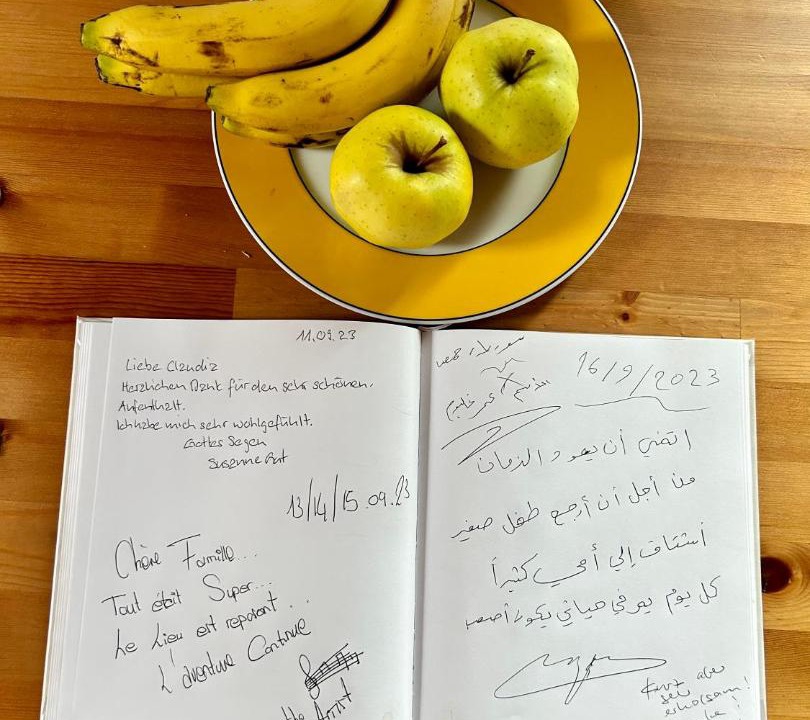 11.09.23
Liebe Claudia
Herzlichen Dank für den sehr schönen,
Aufenthalt.
Ich habe mich sehr wohlgefühlt.
Gottes Segen
Susanne
13/14/15.09.23
Chère Famille...
Tout était Super...
Le Lieu est reposant...
L'aventure Continue
the Artist
سوريا حمص
16/9/2023
اتمنى أن يعود الزمان
من أجل أن أرجع طفل صغير
أشتاق إلى أمي كثيراً
كل يوم يمر في حياتي يكون أصعب
Kurz aber
sehr
erholsam!